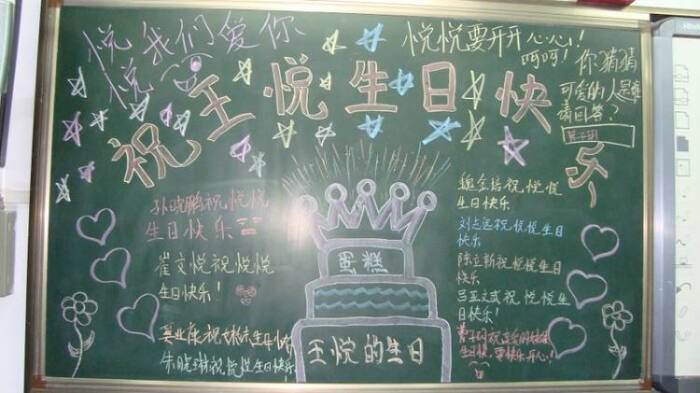 悦悦我们爱你
悦悦要开开心心!
呵呵!
你猜猜
可爱的人是谁
请回答?
祝王悦生日快乐
孙晓鹏祝悦悦
生日快乐
崔文悦祝悦悦
生日快乐!
祝妹妹生日快乐
朱晓琳祝悦悦生日快乐
蛋糕
王悦的生日
魏金培祝悦悦
生日快乐
刘志远祝悦悦生日
快乐
陈立新祝悦悦生日
快乐
祝悦悦生
日快乐!
生日快乐,要快乐开心!